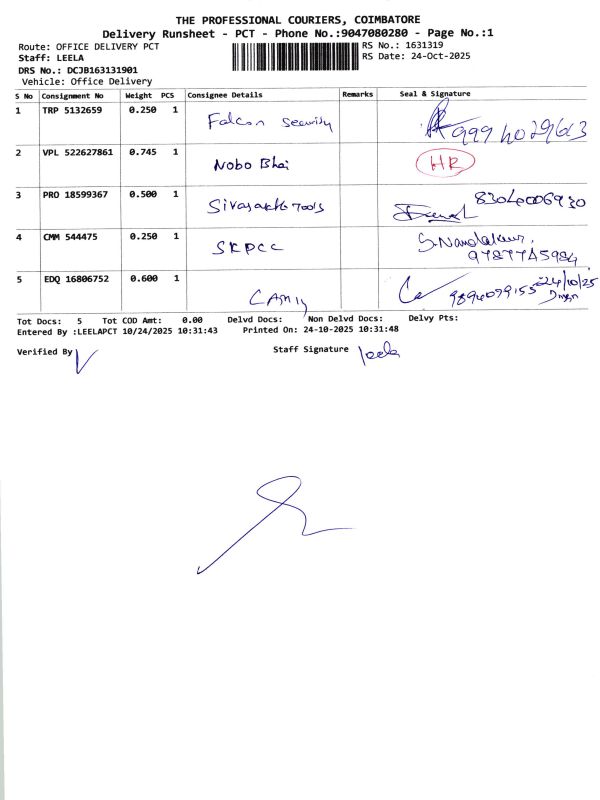 THE PROFESSIONAL COURIERS, COIMBATORE
Delivery Runsheet - PCT - Phone No.:9047080280 - Page No.:1
Route: OFFICE DELIVERY PCT RS No.: 1631319
Staff: LEELA RS Date: 24-Oct-2025
DRS No.: DCJB163131901
Vehicle: Office Delivery
S No Consignment No Weight PCS Consignee Details Remarks Seal & Signature
1 TRP 5132659 0.250 1 Falcon Security
2 VPL 522627861 0.745 1 Nobo Bhai HR
3 PRO 18599367 0.500 1 8304006930
4 CMM 544475 0.250 1 SKPCC
5 EDQ 16806752 0.600 1 24/10/25
Tot Docs: 5 Tot COD Amt: 0.00 Delvd Docs: Non Delvd Docs: Delvy Pts:
Entered By :LEELAPCT 10/24/2025 10:31:43 Printed On: 24-10-2025 10:31:48
Verified By Staff Signature leela